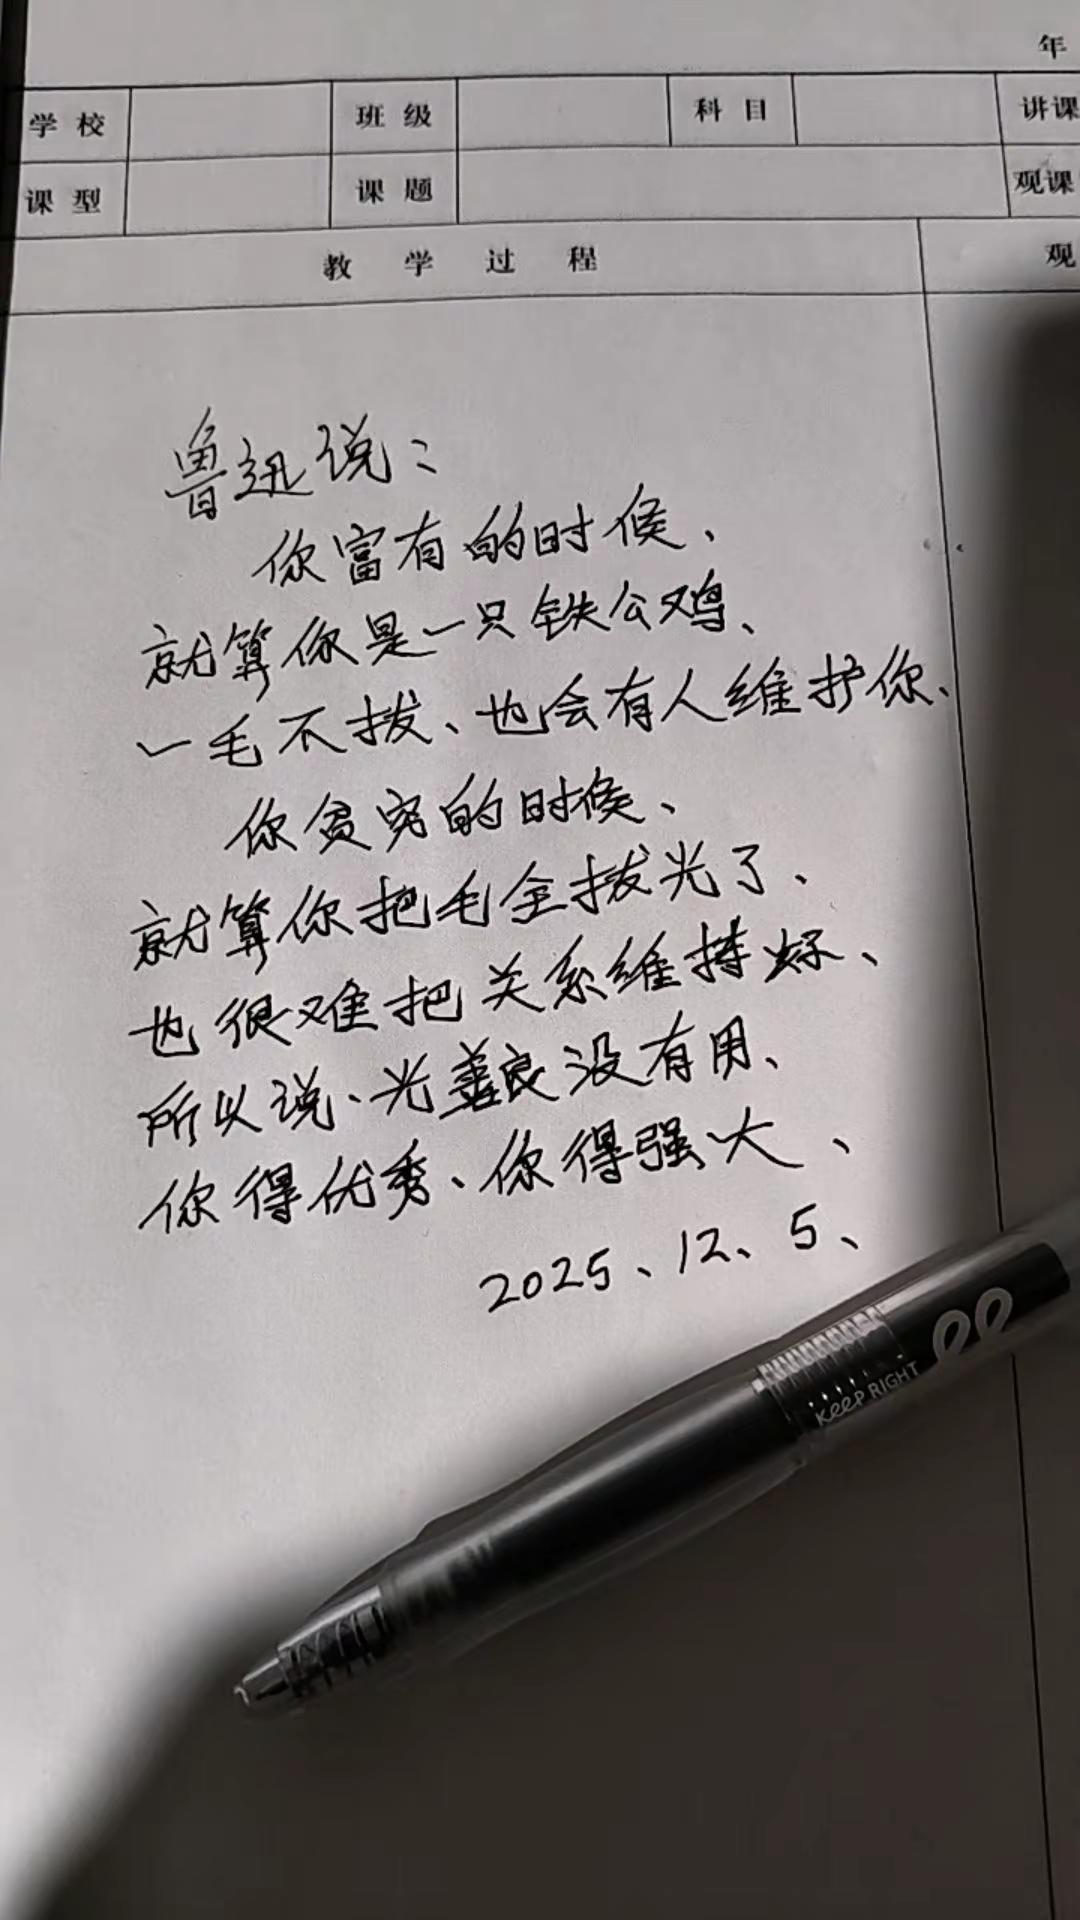 年
学校 班级 科目 讲课
课型 课题 观课
教学过程 观
鲁迅说：
你富有的时候、
就算你是一只铁公鸡、
一毛不拔、也会有人维护你、
你贫穷的时候、
就算你把毛全拔光了、
也很难把关系维持好、
所以说、光善良没有用、
你得优秀、你得强大、
2025、12、5、
KEEP RIGHT